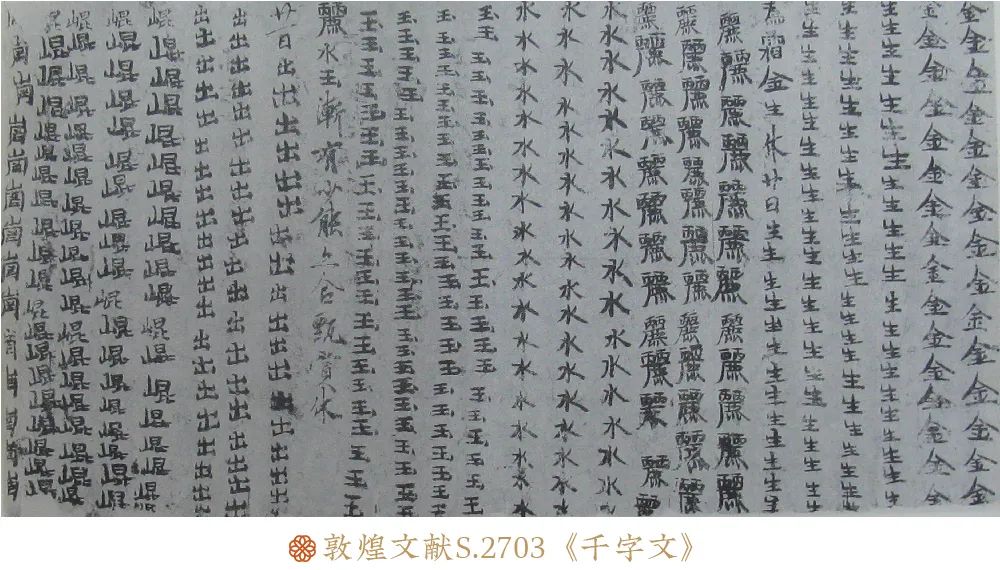 金金金金金金金金金金金金金金
金金金金金金金金金金金金金金金金
生生生生生生生生生生生生生生生生生生生生生
生生生生生生生生生生生生生生生生生生生
生生生生生生生生生生生生生生生生生生
為霜金生休廿日生生生生生生生生生生生生
麗麗麗麗麗麗麗麗麗麗麗麗麗麗
麗麗麗麗麗麗麗麗麗麗麗麗麗麗
麗麗麗麗麗麗麗麗麗麗麗麗麗
水水水水水水水水水水水水水水水
水水水水水水水水水水水水水水水水
水水水水水水水水水水水水水水水水水水
玉玉玉玉玉玉玉玉玉玉玉玉玉玉玉玉玉玉玉玉玉玉
玉玉玉玉玉玉玉玉玉玉玉玉玉玉玉玉玉玉玉玉玉玉玉
玉玉玉玉玉玉玉玉玉玉玉玉玉玉玉玉玉玉玉玉玉玉玉玉
玉玉玉玉玉玉玉玉玉玉玉玉玉玉玉玉玉玉玉玉玉
麗水玉漸有少能合甄賞休
廿日出出出出出出出出出出出出出出出
出出出出出出出出出出出出出出出出出出出
出出出出出出出出出出出出出出出出出出
崐崐崐崐崐崐崐崐崐崐崐崐崐崐
崐崐崐崐崐崐崐崐崐崐崐崐崐崐
崐崐崐崐崐崐崐崐崐崐崐崐崐崐崐崐
崐崐崐崐崐崐崐崐崐崐崐崐崐崐崐崐
崗崗崗崗崗崗崗崗崗崗崗崗
敦煌文献S.2703《千字文》